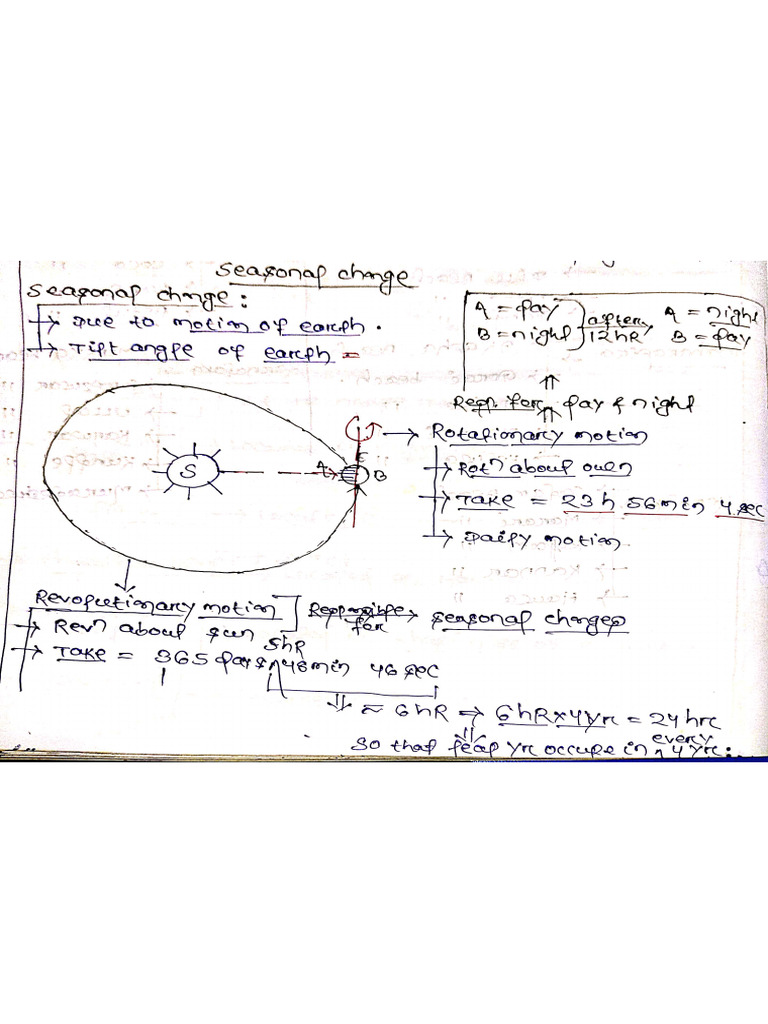 Seasonal change
Seasonal chnge:
→ Due to motion of earth.
→ Tilt angle of earth =
A = Day
B = night
after
12hR
A = night
B = Day
Respn. for Day & night
S
A
E
B
→ Rotationary motion
→ Rotn about own
→ Take = 23h 56min 4sec
→ Daily motion
Revolutionary motion
Responsible
for
→ seasonal changes
→ Revn about sun
5hR
→ Take = 365 days 48min 46 sec
≈ 6hR ⇒ 6hR×4yr = 24hr
So that leap yr occupe in every 4yr.